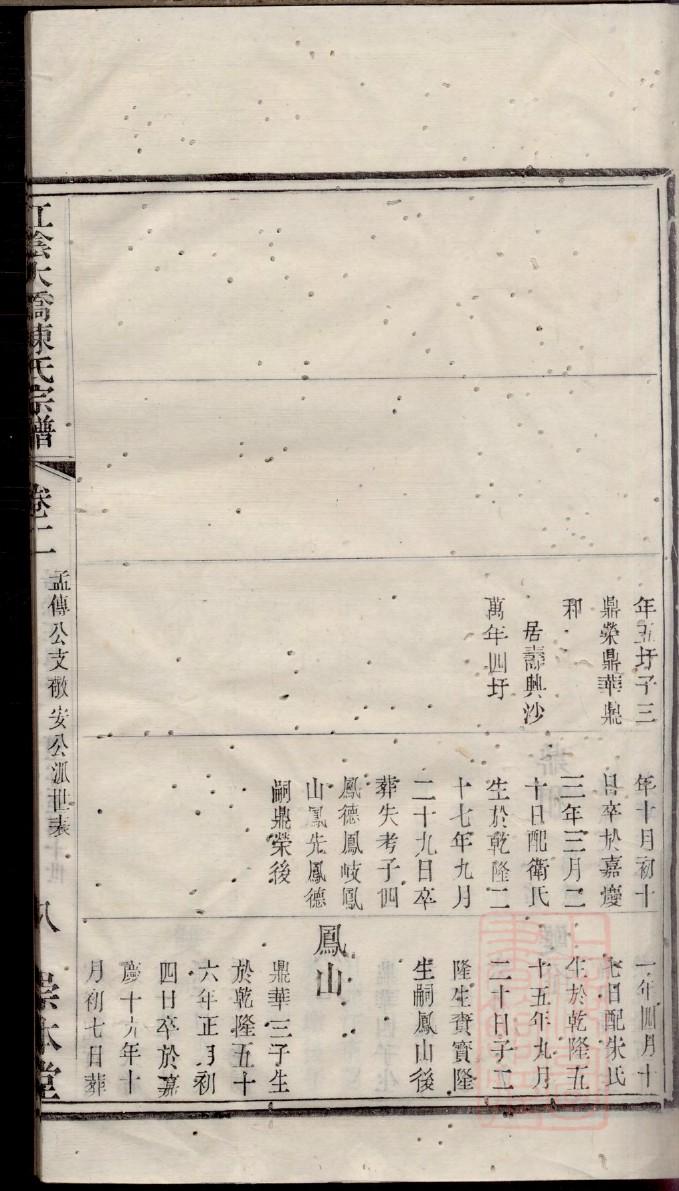 年五圩子三
鼎榮鼎華鼎
和
居壽興沙
萬年四圩
年十月初十
日卒於嘉慶
三年三月二
十日配衛氏
生於乾隆二
十七年九月
二十九日卒
葬失考子四
鳳德鳳岐鳳
山鳳先鳳德
嗣鼎榮後
一年四月十
七日配朱氏
生於乾隆五
十五年九月
二十日子二
隆生賚賓隆
生嗣鳳山後
鳳山
鼎華三子生
於乾隆五十
六年正月初
四日卒於嘉
慶十九年十
月初七日葬
江陰大橋陳氏宗譜
卷二
孟傳公支敬安公派世表
八
崇本堂